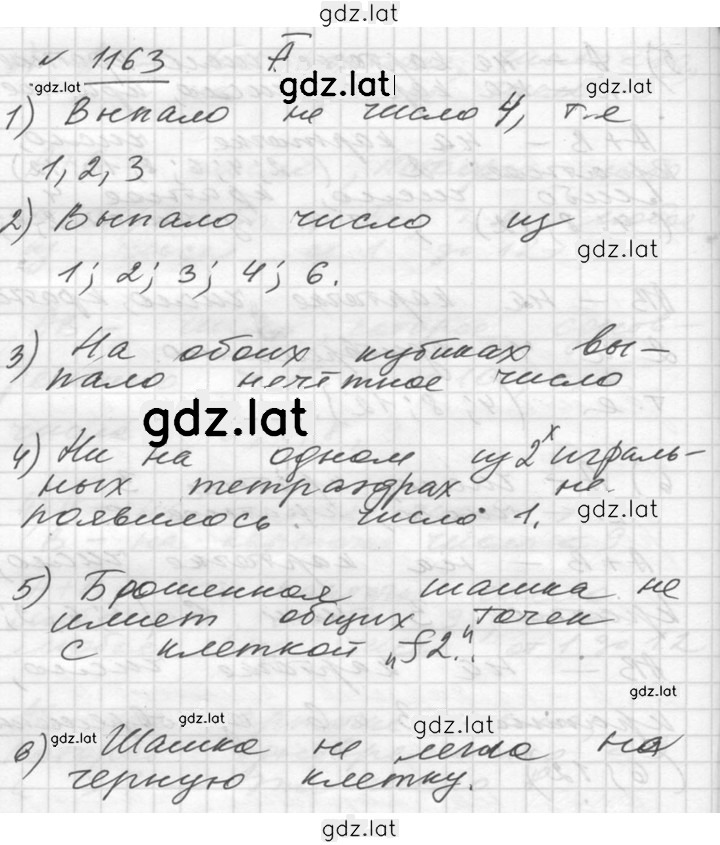 gdz.lat
№ 1163 Ā
gdz.lat gdz.lat
1) Выпало не число 4, т.е
1, 2, 3
2) Выпало число из
gdz.lat
1; 2; 3; 4; 6.
3) На обоих кубиках вы-
пало нечётное число
gdz.lat
4) Ни на одном из 2х играль-
ных тетраэдрах не
появилось число 1.
gdz.lat
5) Брошенная шашка не
имеет общих точек
с клеткой „f2".
gdz.lat
gdz.lat gdz.lat
6) gdz.lat Шашка не легла на
черную клетку.
gdz.lat